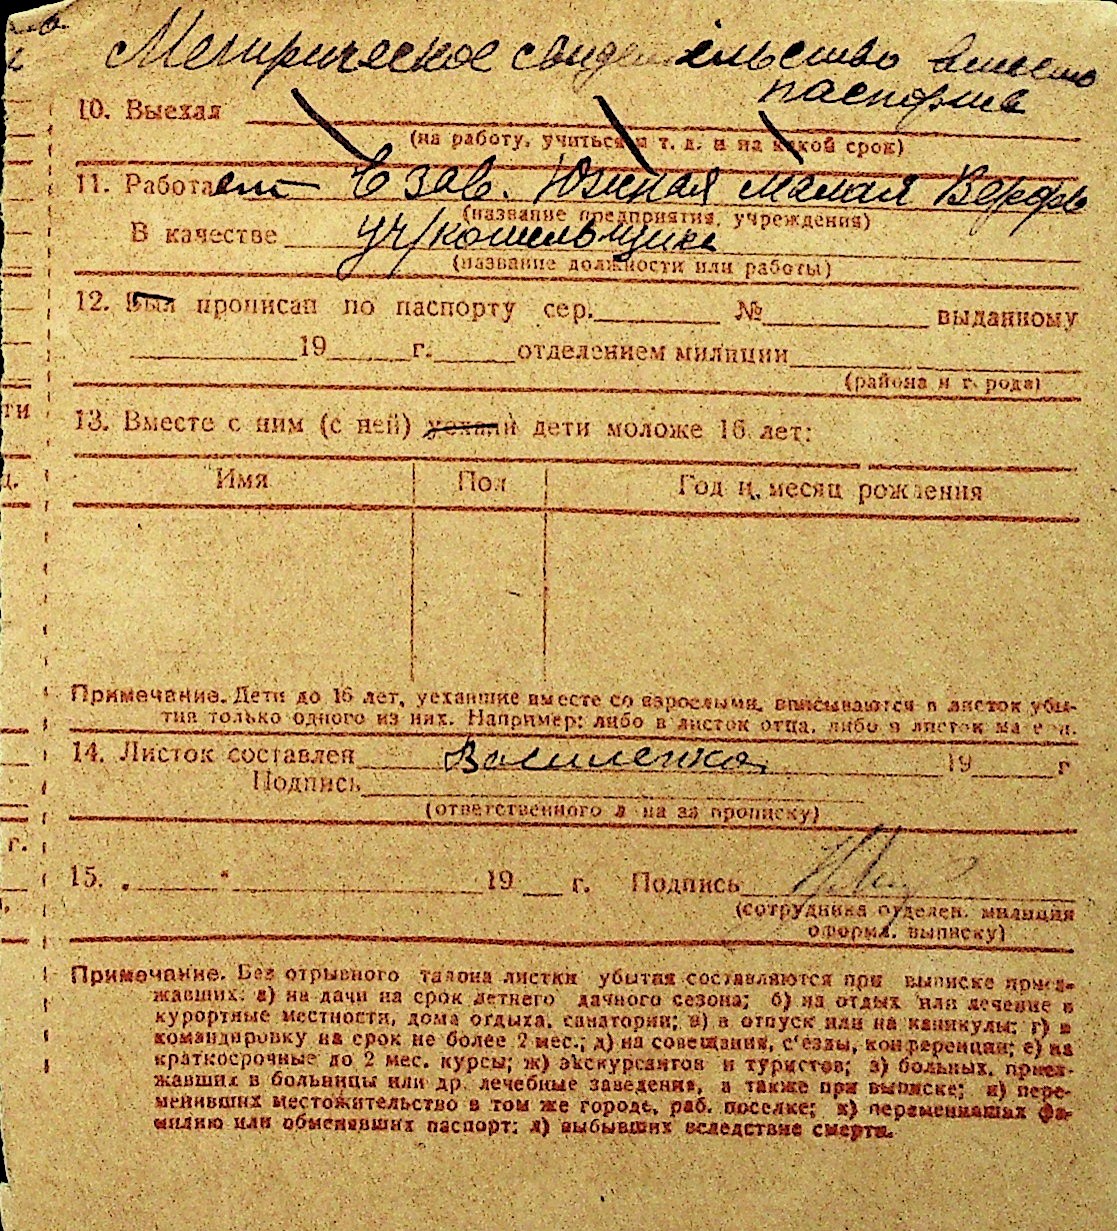 Метрическое свидетельство вместо
паспорта
10. Выехал
(на работу, учиться и т. д. и на какой срок)
11. Работает зав. Южная малая Верфь
(название предприятия, учреждения)
В качестве уч/кошельщика
(название должности или работы)
12. Был прописан по паспорту сер. № выданному
19 г. отделением милиции
(района и города)
13. Вместе с ним (с ней) уехали дети моложе 16 лет:
Имя Пол Год и месяц рождения
Примечание. Дети до 16 лет, уехавшие вместе со взрослыми, вписываются в листок убы-
тия только одного из них. Например: либо в листок отца, либо в листок матери.
14. Листок составлен 19 г
Подпись
(ответственного лица за прописку)
15. „ " 19 г. Подпись
(сотрудника отделен. милиции
оформл. выписку)
Примечание. Без отрывного талона листки убытия составляются при выписке приез-
жавших: а) на дачи на срок летнего дачного сезона; б) на отдых или лечение в
курортные местности, дома отдыха, санатории; в) в отпуск или на каникулы; г) в
командировку на срок не более 2 мес.; д) на совещания, с'езды, конференции; е) на
краткосрочные до 2 мес. курсы; ж) экскурсантов и туристов; з) больных, приез-
жавших в больницы или др. лечебные заведения, а также при выписке; и) пере-
менивших местожительство в том же городе, раб. поселке; к) переменивших фа-
милию или обменявших паспорт; л) выбывших вследствие смерти.